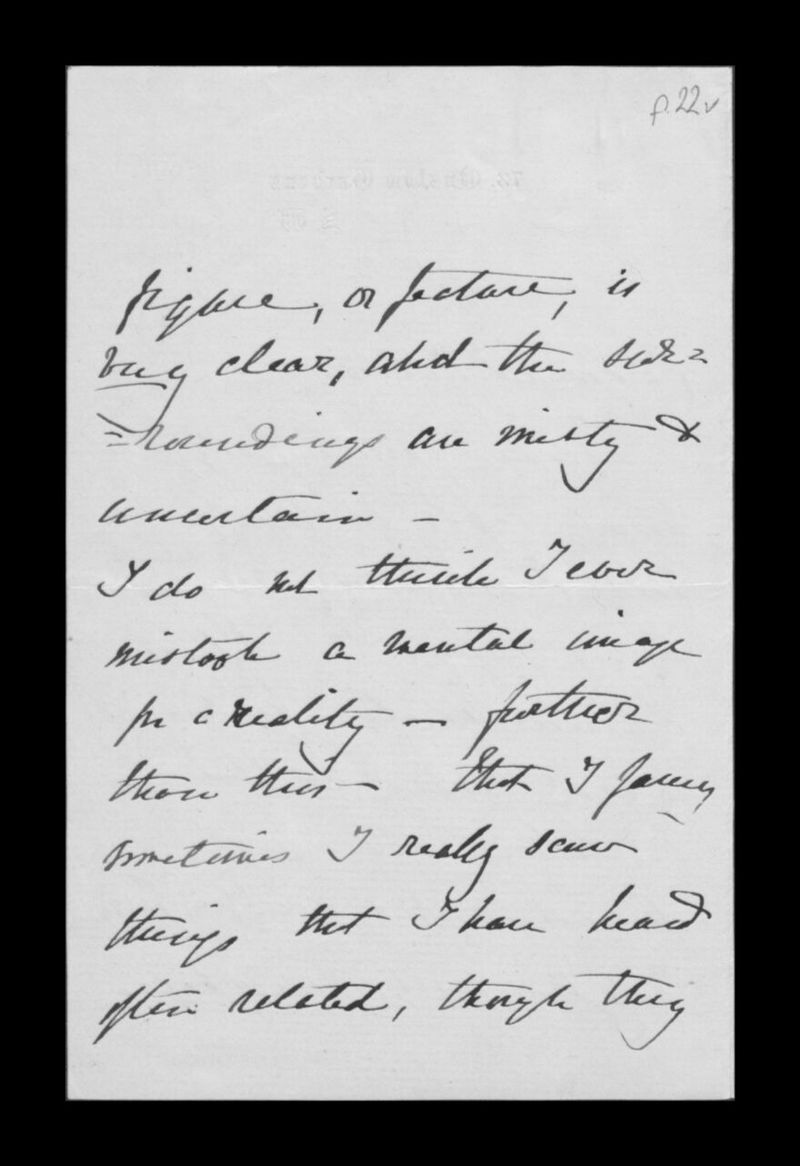 f.22v
figure, or feature, is
very clear, and the sur=
=roundings are misty &
uncertain –
I do not think I ever
mistook a mental image
for a reality – further
than this – that I fancy
sometimes I really saw
things that I have heard
often related, though they